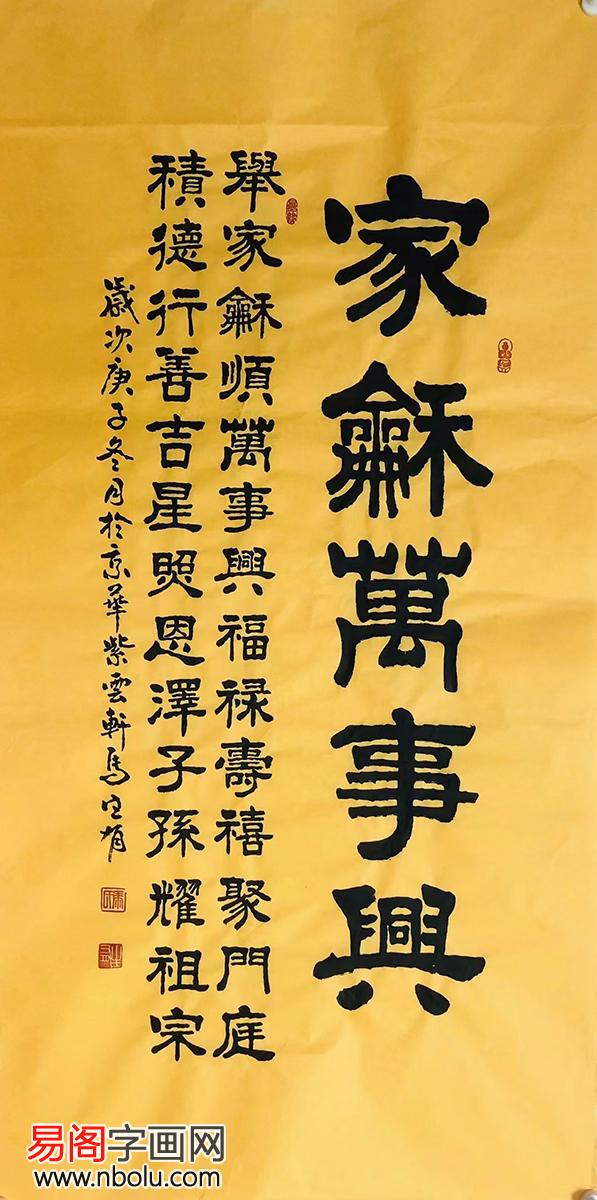 家龢萬事興
舉家龢順萬事興福禄壽禧聚門庭
積德行善吉星照恩澤子孫耀祖宗
歲次庚子冬月於京華紫雲軒馬
易阁字画网
www.nbolu.com